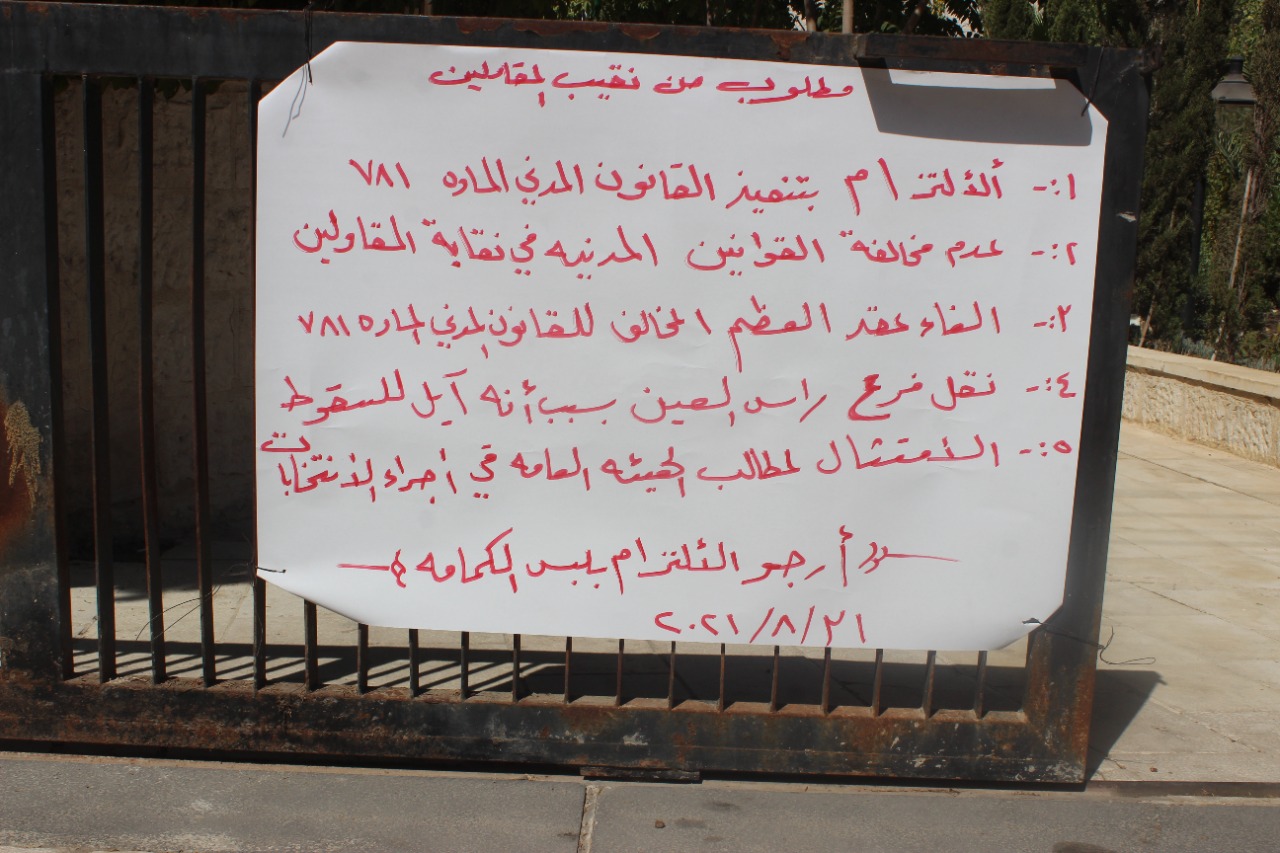 مطلوب من نقيب المقاولين
١:- ألألتزام بتنفيذ القانون المدني الماده ٧٨١
٢:- عدم مخالفة القوانين المدنيه في نقابة المقاولين
٣:- الغاء عقد العظم المخالف للقانون المدني الماده ٧٨١
٤:- نقل فرع راس العين بسبب أنه آيل للسقوط
٥:- الأمتثال لمطالب الهيئه العامه في أجراء الأنتخابات
أرجو الألتزام بلبس الكمامه
٢٠٢١/٨/٢١